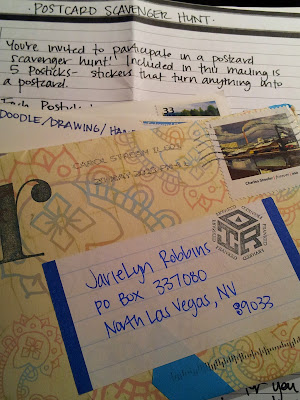 ·POSTCARD SCAVENGER HUNT·
You're invited to participate in a postcard
scavenger hunt! Included in this mailing is
5 Posticks- stickers that turn anything into
a postcard.
Each
33
DOODLE/DRAWING/
CAROL STREAM IL
Charles Sheeler
r
Jarielyn Robbins
PO BOX 337080
North Las Vegas, NV
89033
you